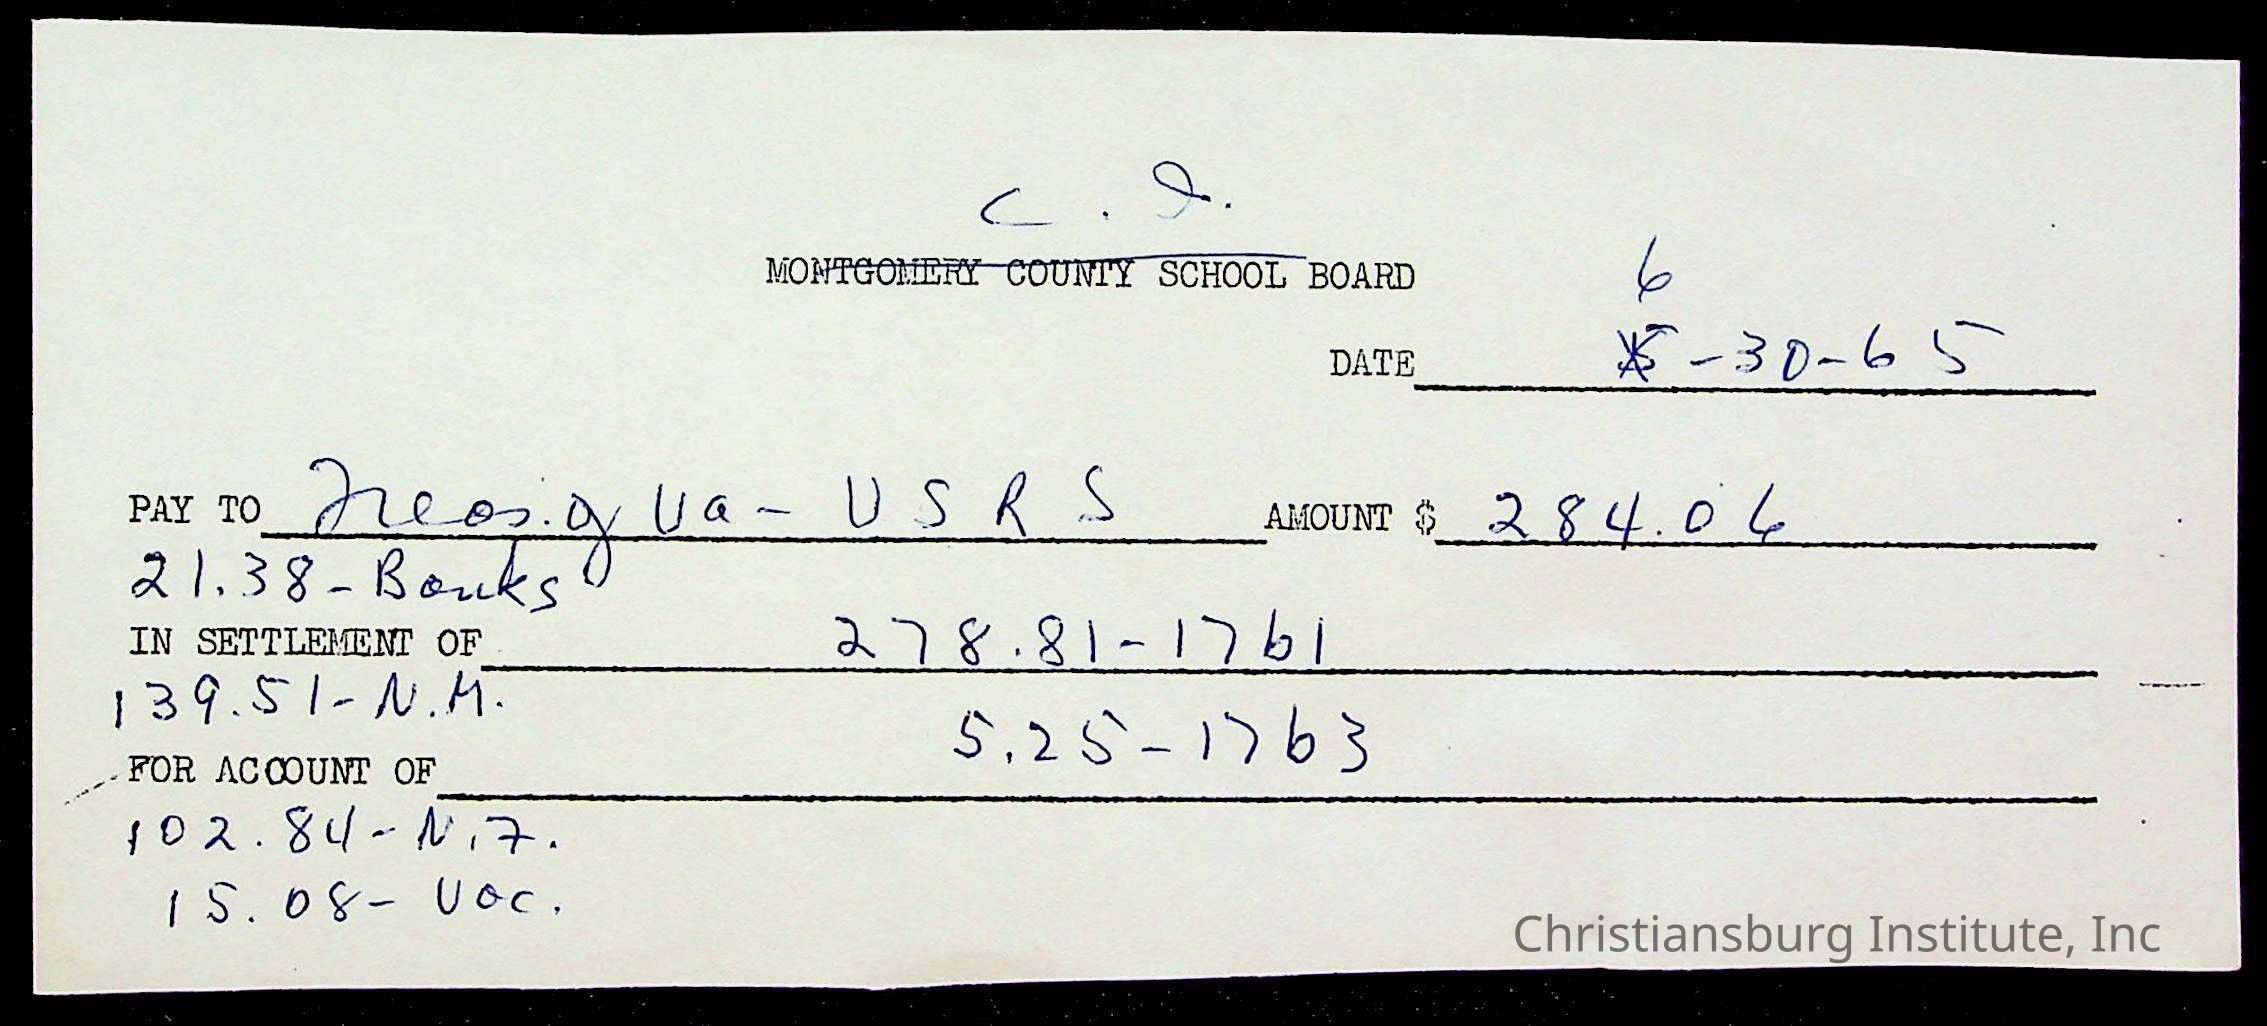 C. I.
MONTGOMERY COUNTY SCHOOL BOARD
6
DATE 5-30-65
PAY TO Treas. of Va - USRS AMOUNT $ 284.06
21.38 - Banks
IN SETTLEMENT OF 278.81 - 1761
139.51 - N.M.
5.25 - 1763
FOR ACCOUNT OF
102.84 - N.F.
15.08 - Voc.
Christiansburg Institute, Inc